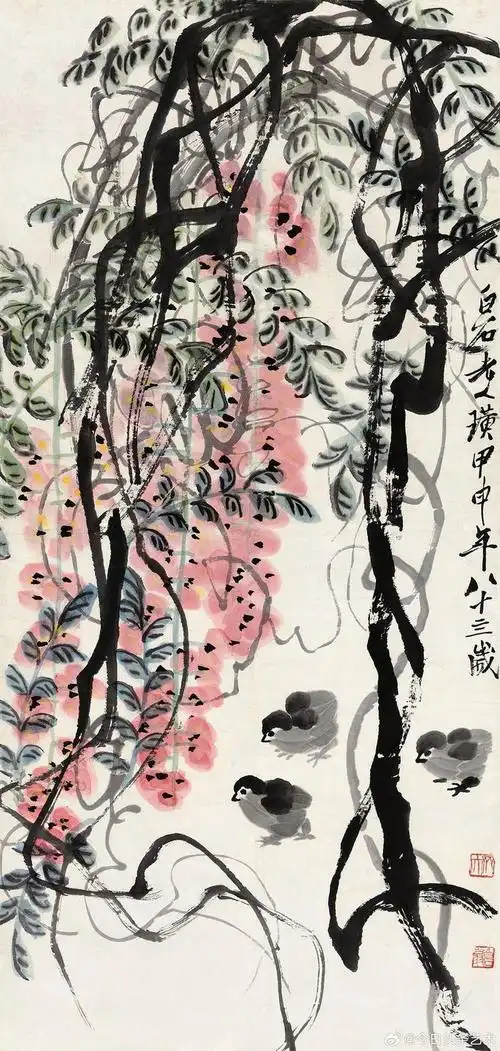 白石老人璜甲申年八十三歲
@今日艺术